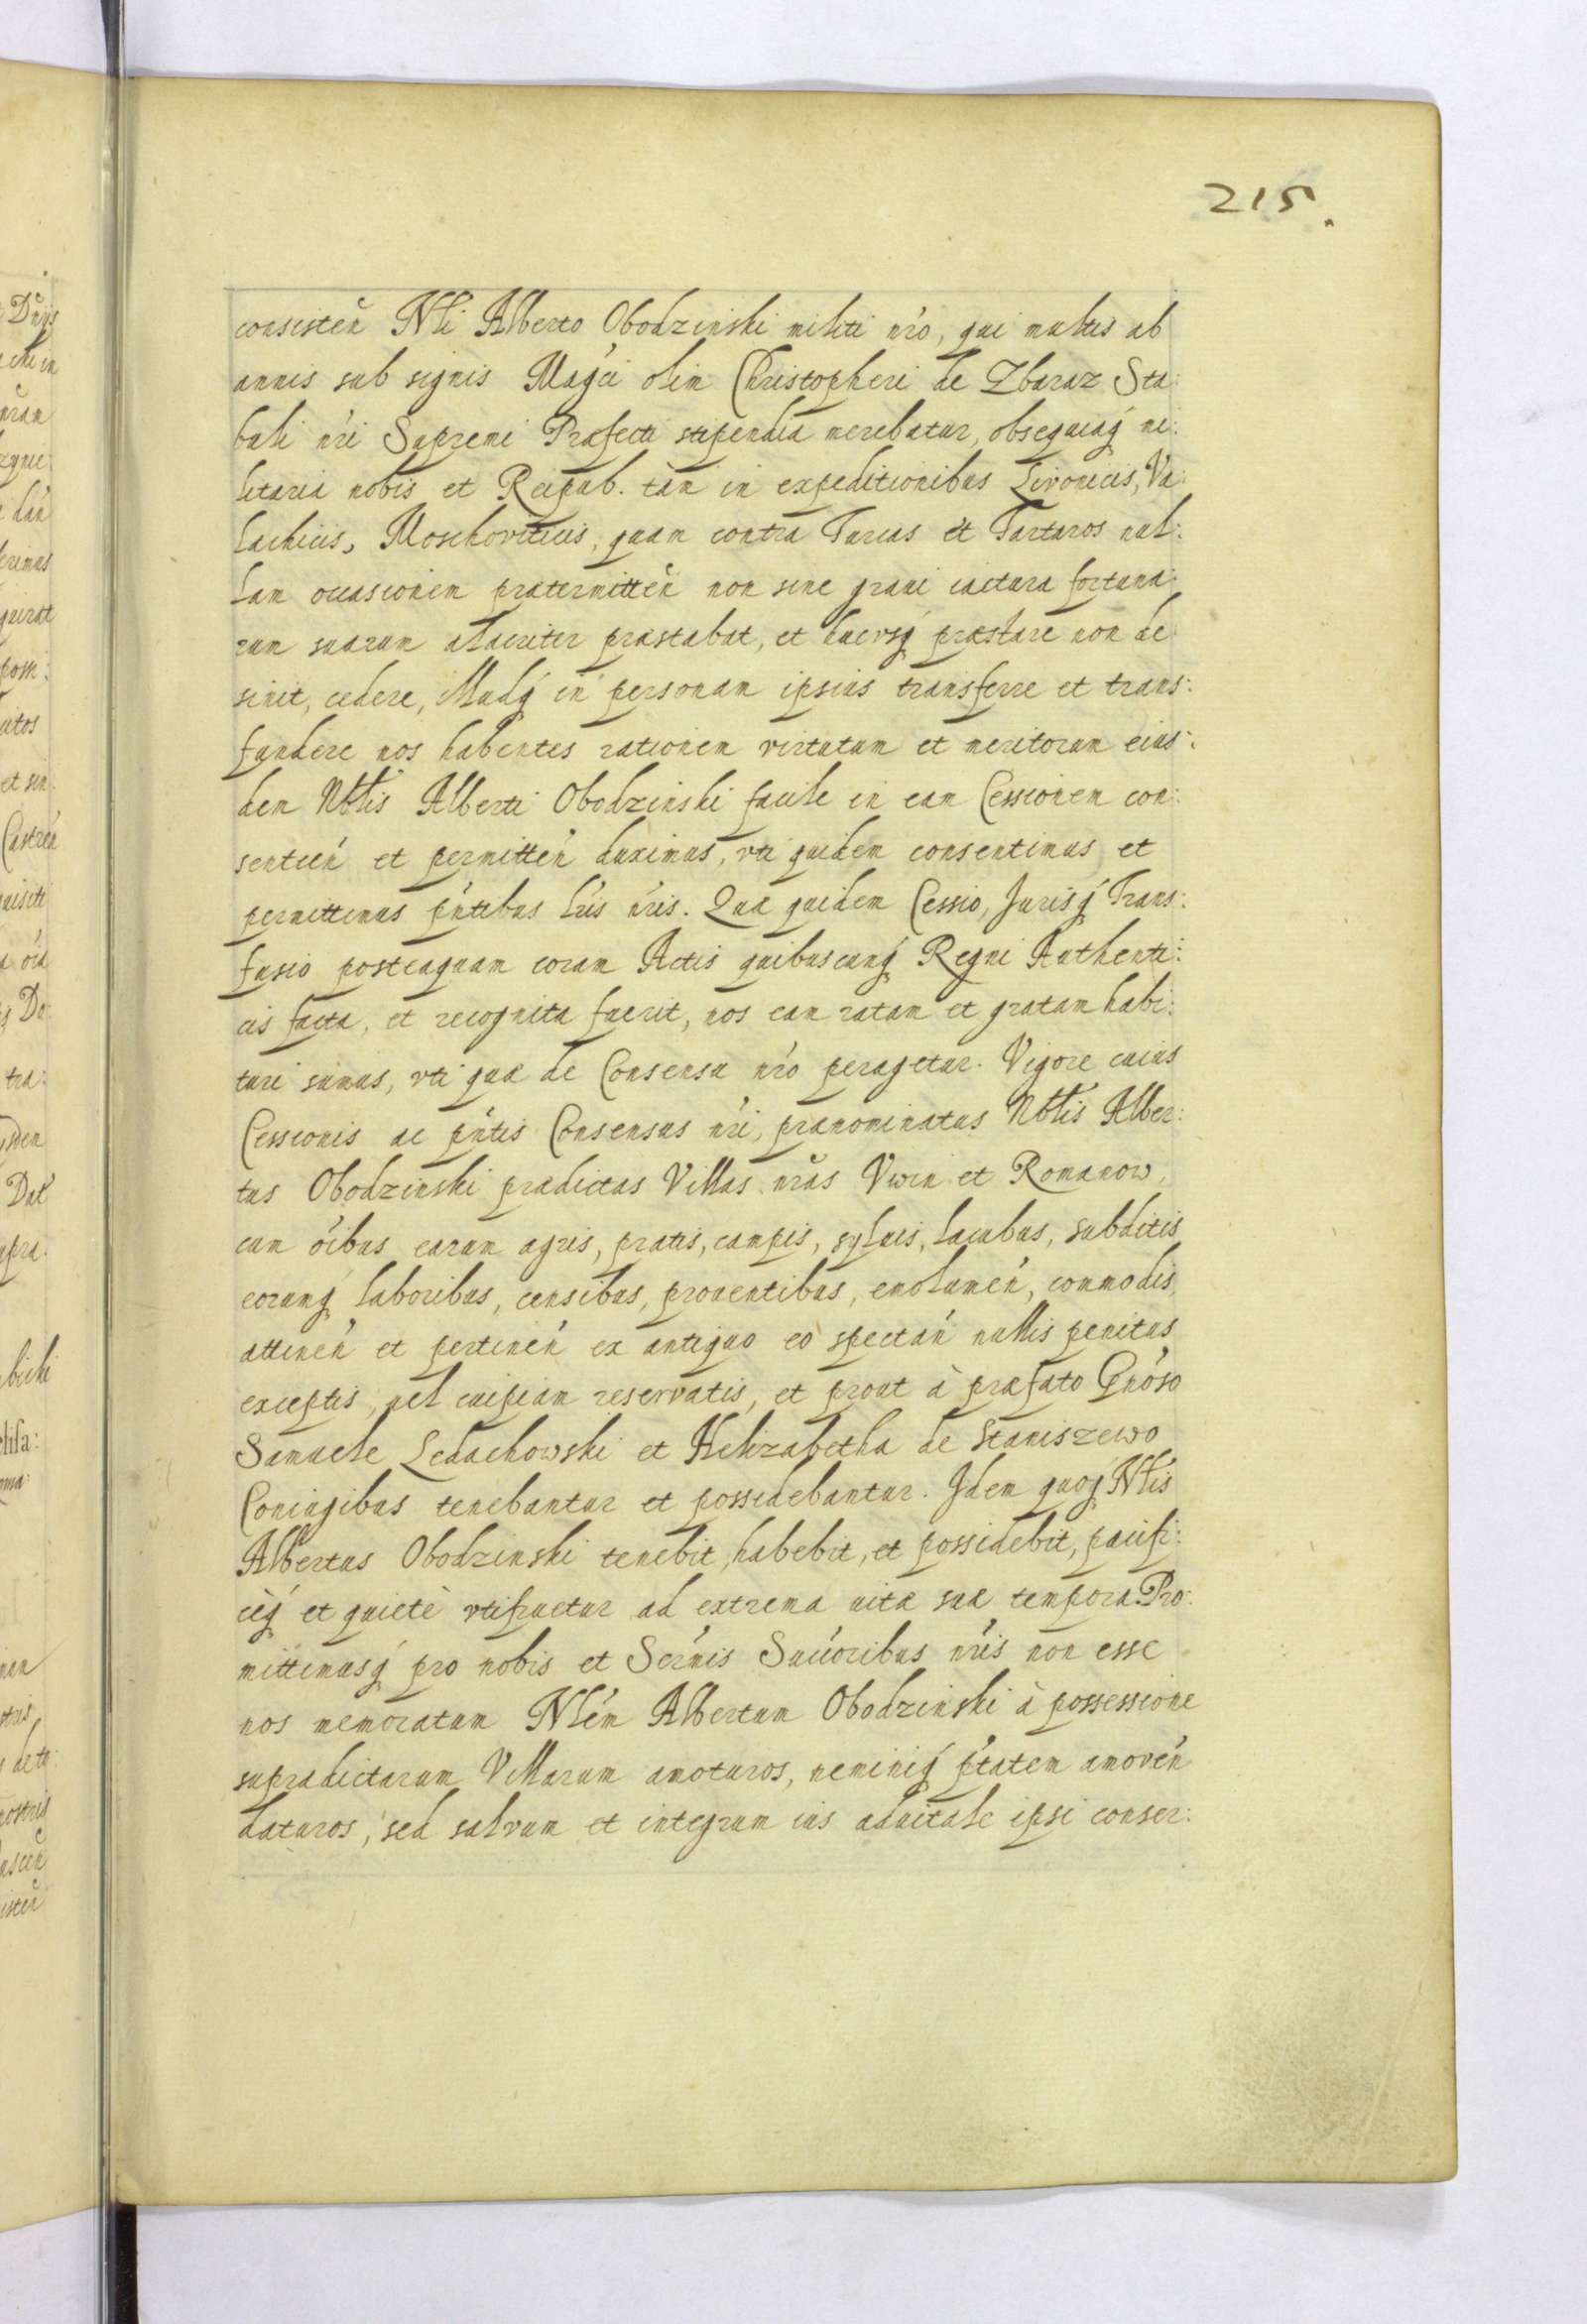 215.
consisten̄ Nli Alberto Obodzinski militi nr̄o, qui multis ab
annis sub signis Mag̓ci olim Christopheri de Zbaraz Sta:
buli nr̄i Supremi Præfecti stipendia merebatur, obsequiaq́ mi:
litaria nobis et Reipub. tàm in expeditionibus Livonicis, Va:
lachicis, Moschoviticis, quam contra Turcas et Tartaros nul:
lam occasionem prætermitteń non sine graui iactura fortuna:
rum suarum alacriter præstabat, et hucvsq́ præstare non de:
sinit, cedere, illudq́ in personam ipsius transferre et trans:
fundere nos habentes rationem virtutum et meritorum eius:
dem Nbl̄is Alberti Obodzinski facile in eam Cessionem con:
sentień et permitteń duximus, vti quidem consentimus et
permittimus pn̄tibus lr̄is nr̄is. Quæ quidem Cessio, Jurisq́ Trans:
fusio posteaquam coram Actis quibuscunq́ Regni Authenti:
cis facta, et recognita fuerit, nos eam ratam et gratam habi:
turi sumus, vti quæ de Consensu nr̄o peragetur. Vigore cuius
Cessionis ac pn̄tis Consensus nr̄i, prænominatus Nbl̄is Alber:
tus Obodzinski prædictas Villas nr̄as Vwin et Romanow,
cum oībus earum agris, pratis, campis, syluis, lacubus, subditis
eorumq́ laboribus, censibus, prouentibus, emolumeń, commodis,
attineń et pertineń ex antiquo eo spectań nullis penitus
exceptis, uel cuipiam reservatis, et prout à præfato Gn̄oso
Samuele Leduchowski et Helizabetha de Staniszewo
Coniugibus tenebantur et possidebantur. Idem quoq́ Nl̄is
Albertus Obodzinski tenebit, habebit, et possidebit, pacifi:
cèq́ et quietè vtifruetur ad extrema uitæ suæ tempora. Pro:
mittimusq́ pro nobis et Serńis Succ̄oribus nr̄is non esse
nos memoratum Nlēm Albertum Obodzinski à possessione
supradictarum Villarum amoturos, neminiq́ ptātem amoveń
daturos, sed salvum et integrum ius aduitale ipsi conser: